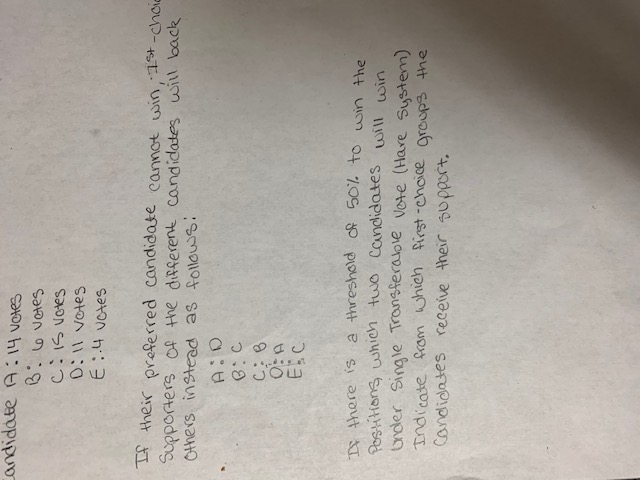 andidate A: 14 votes
B: 6 votes
C: 15 votes
D: 11 votes
E: 4 votes
If their preferred candidate cannot win, 1st-choic
supporters of the different candidates will back
others instead as follows:
A: D
B: C
C: B
D: A
E: C
If there is a threshold of 50% to win the
Positions which two candidates will win
Under Single Transferable Vote (Hare System)
Indicate from which first-choice groups the
Candidates receive their support.